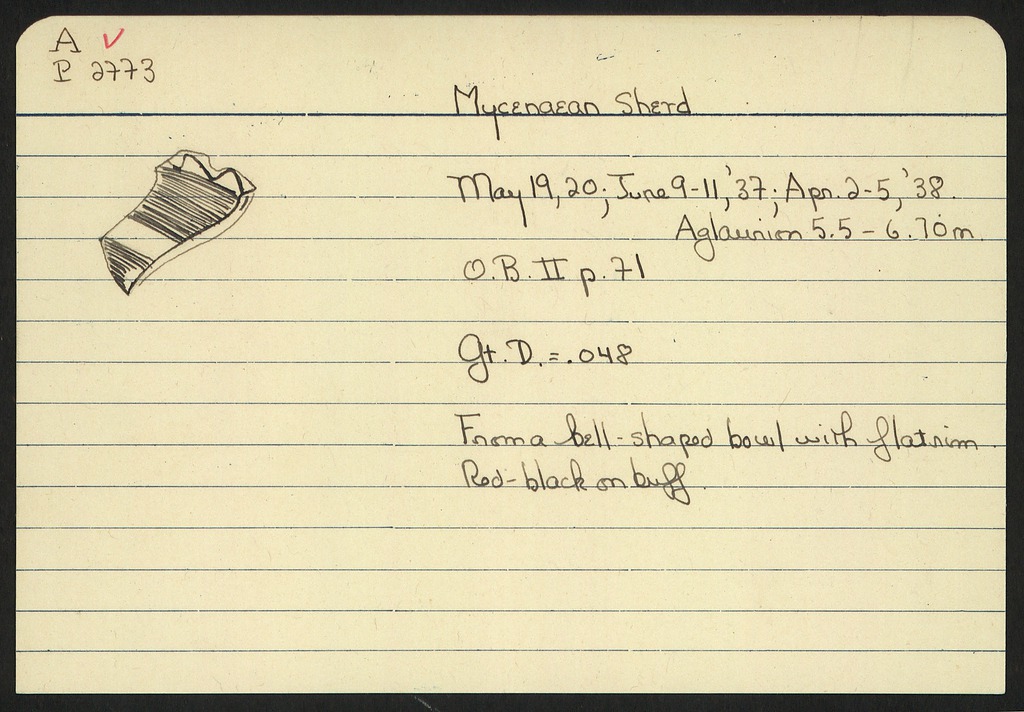 A ✓
P 2773
Mycenaean Sherd
May 19, 20; June 9-11, '37; Apr. 2-5, '38.
Aglaurion 5.5 - 6.70 m.
O.B. II p. 71
Gt. D. = .048
From a bell-shaped bowl with flat rim.
Red-black on buff.